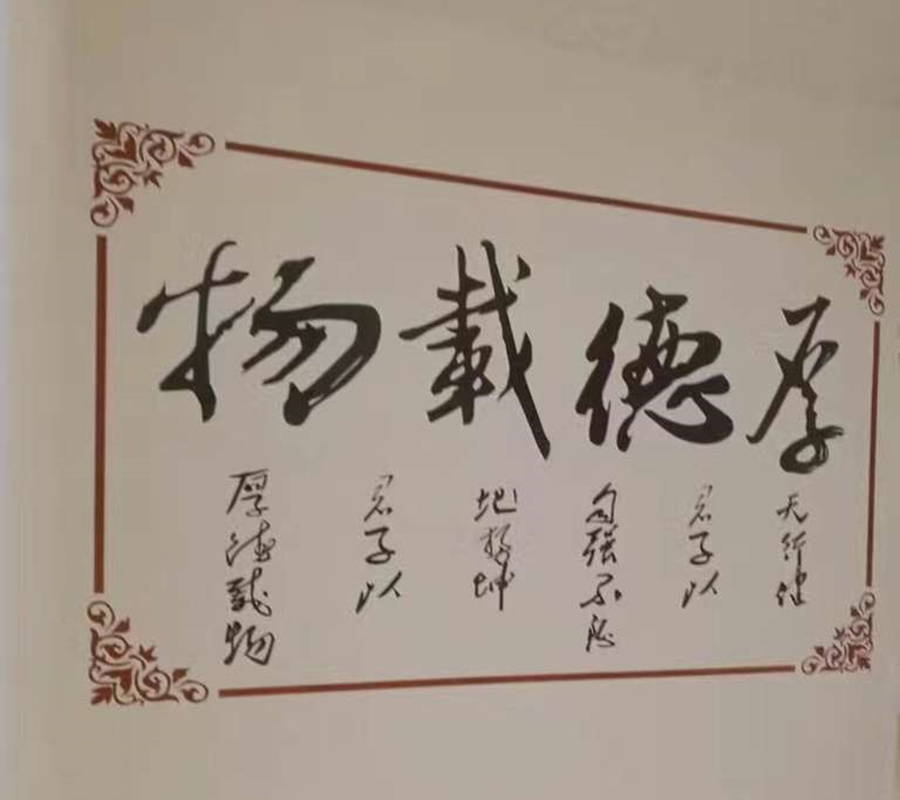 厚德载物
天行健
君子以
自强不息
地势坤
君子以
厚德载物